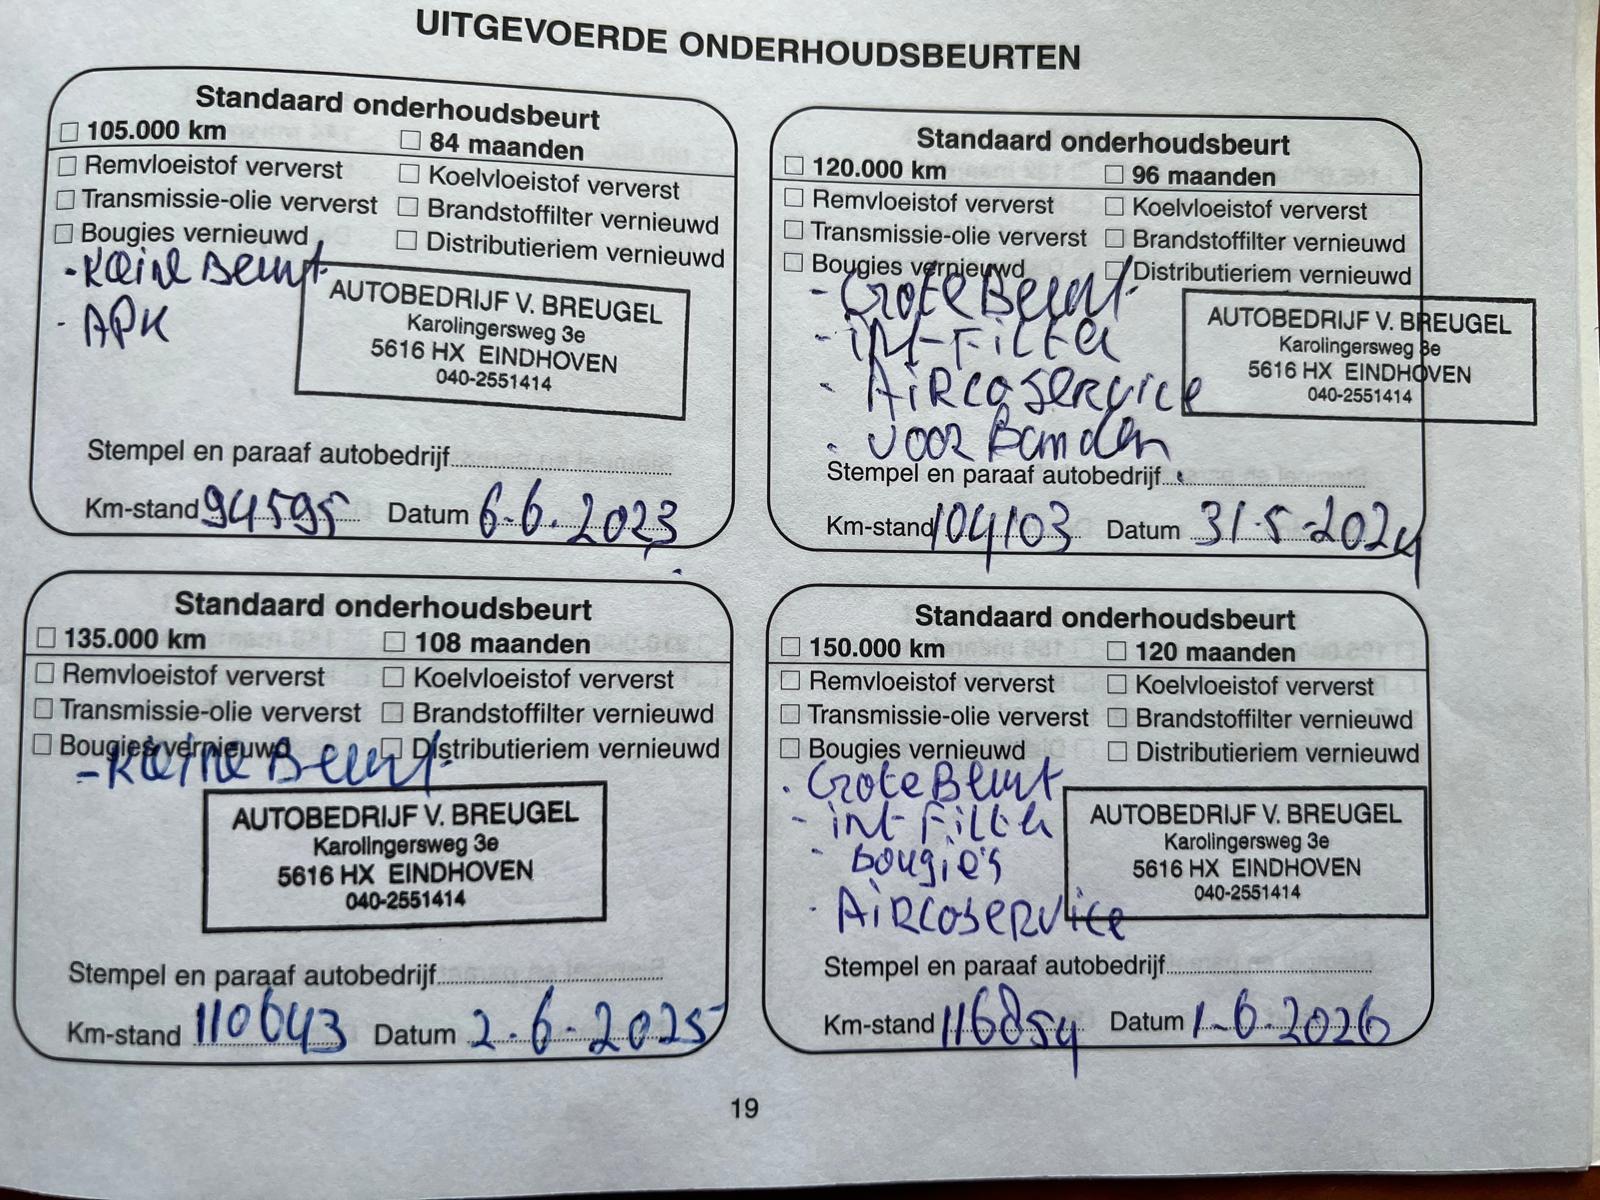 UITGEVOERDE ONDERHOUDSBEURTEN
Standaard onderhoudsbeurt
105.000 km 84 maanden
Remvloeistof ververst Koelvloeistof ververst
Transmissie-olie ververst Brandstoffilter vernieuwd
Bougies vernieuwd Distributieriem vernieuwd
- Kleine Beurt
- APK
AUTOBEDRIJF V. BREUGEL
Karolingersweg 3e
5616 HX EINDHOVEN
040-2551414
Stempel en paraaf autobedrijf
Km-stand 94595 Datum 6-6-2023
Standaard onderhoudsbeurt
120.000 km 96 maanden
Remvloeistof ververst Koelvloeistof ververst
Transmissie-olie ververst Brandstoffilter vernieuwd
Bougies vernieuwd Distributieriem vernieuwd
- Grote Beurt
- int-Filter
- Aircoservice
- voor Banden
AUTOBEDRIJF V. BREUGEL
Karolingersweg 3e
5616 HX EINDHOVEN
040-2551414
Stempel en paraaf autobedrijf
Km-stand 104103 Datum 31-5-2024
Standaard onderhoudsbeurt
135.000 km 108 maanden
Remvloeistof ververst Koelvloeistof ververst
Transmissie-olie ververst Brandstoffilter vernieuwd
Bougies vernieuwd Distributieriem vernieuwd
- Kleine Beurt
AUTOBEDRIJF V. BREUGEL
Karolingersweg 3e
5616 HX EINDHOVEN
040-2551414
Stempel en paraaf autobedrijf
Km-stand 110643 Datum 2-6-2025
Standaard onderhoudsbeurt
150.000 km 120 maanden
Remvloeistof ververst Koelvloeistof ververst
Transmissie-olie ververst Brandstoffilter vernieuwd
Bougies vernieuwd Distributieriem vernieuwd
- Grote Beurt
- int-Filter
- Bougie's
- Aircoservice
AUTOBEDRIJF V. BREUGEL
Karolingersweg 3e
5616 HX EINDHOVEN
040-2551414
Stempel en paraaf autobedrijf
Km-stand 116854 Datum 1-6-2026
19